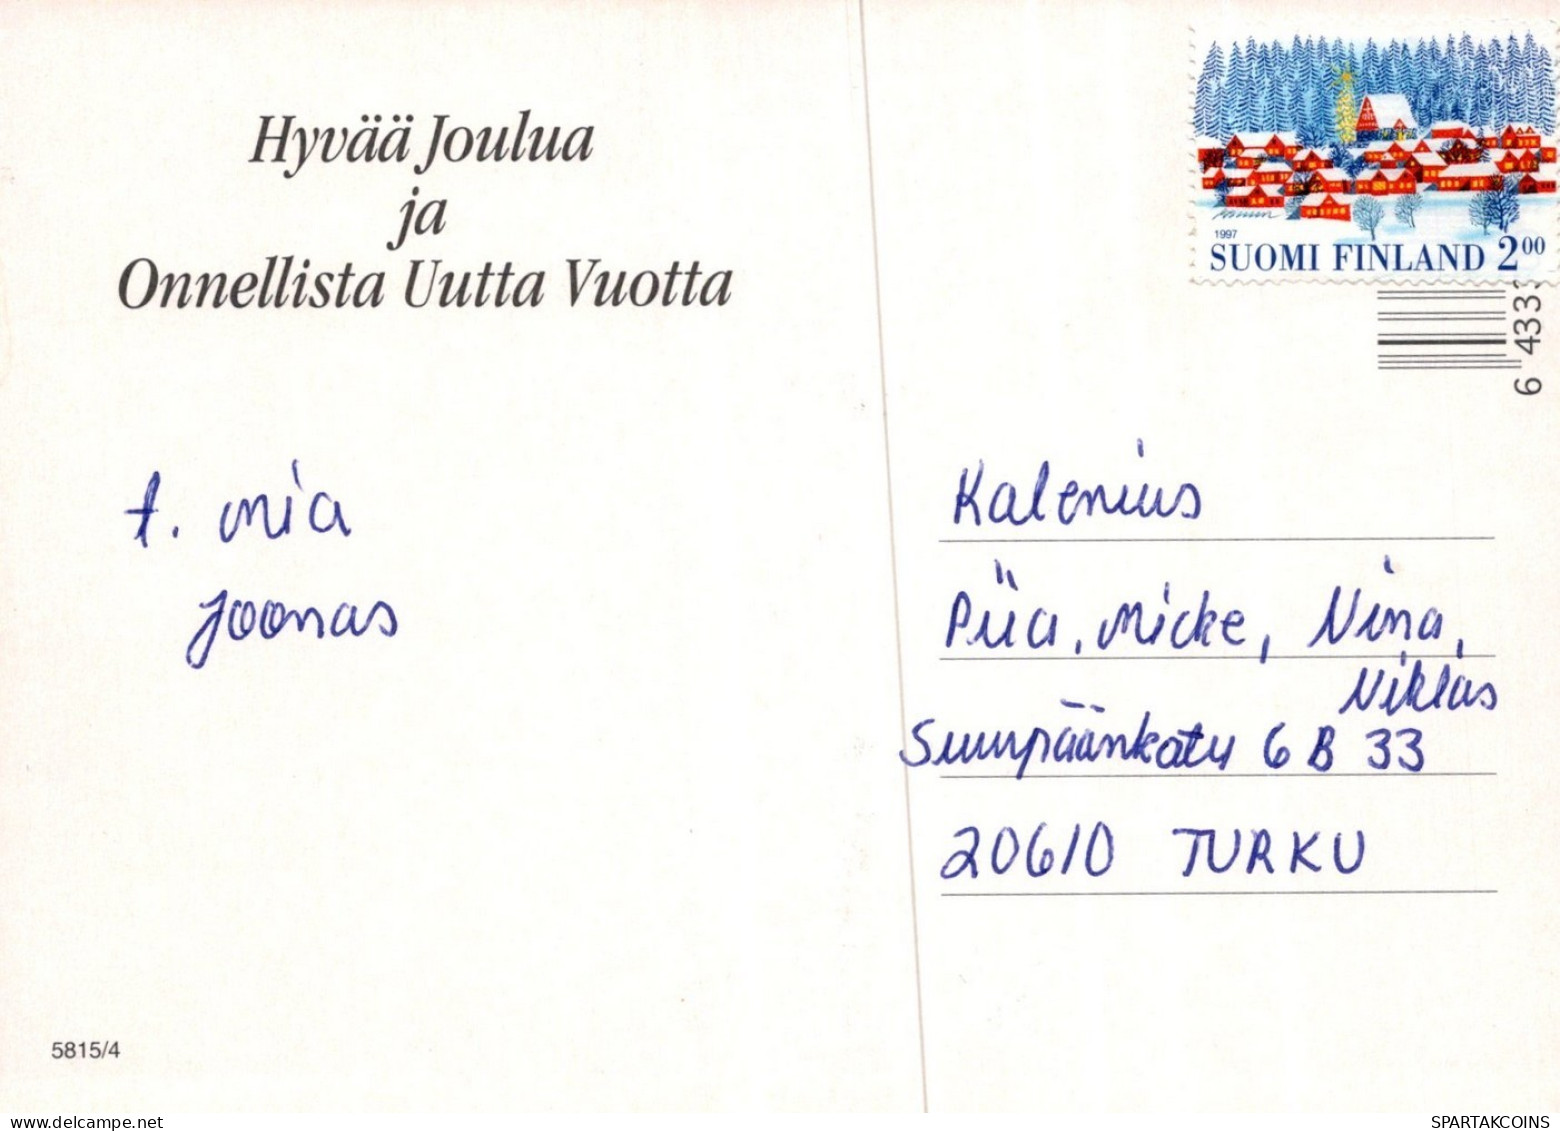 Hyvää Joulua
ja
Onnellista Uutta Vuotta
1997
SUOMI FINLAND 200
6 4333
t. Mia
Joonas
Kalenius
Piia, Micke, Nina,
Niklas
Suurpäänkatu 6 B 33
20610 TURKU
5815/4
www.delcampe.net
SPARTAKCOINS